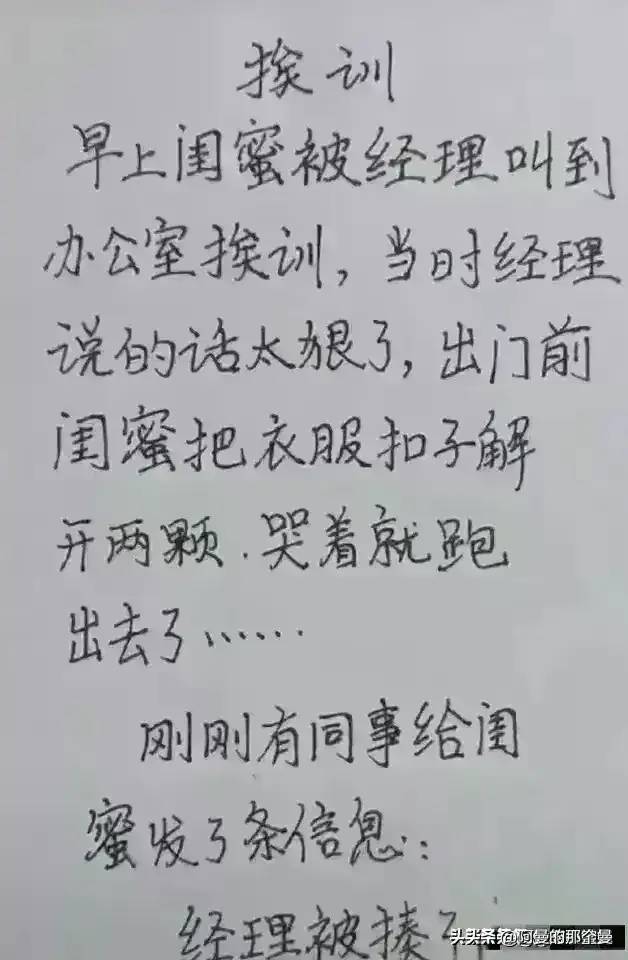 挨训
早上闺蜜被经理叫到
办公室挨训,当时经理
说的话太狠了,出门前
闺蜜把衣服扣子解
开两颗.哭着就跑
出去了……
刚刚有同事给闺
蜜发了条信息:
经理被揍了